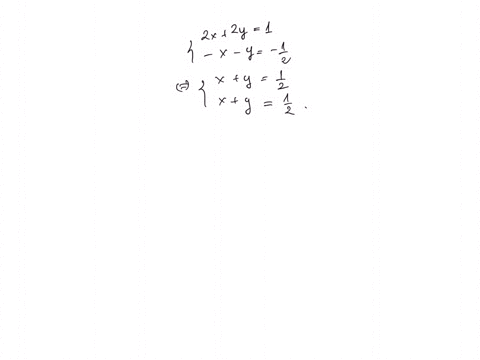 { 2x + 2y = 1
- x - y = - 1/2
(=) { x + y = 1/2
x + y = 1/2 .